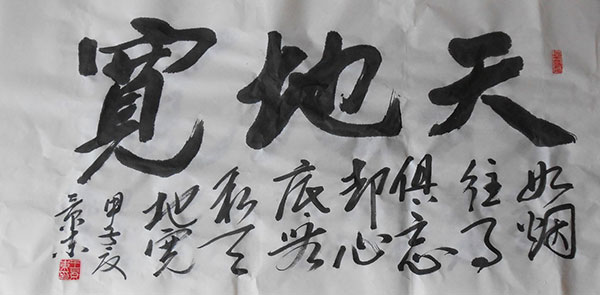 天地寬
如烟
往事
俱忘
却心
底無
私天
地宽
甲午夏